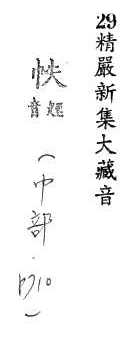 29精嚴新集大藏音
帙
音
（中部．p710）